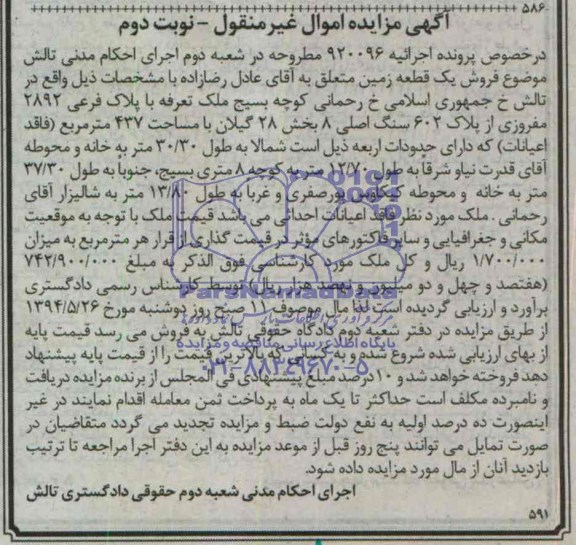 ۵۸۶
آگهی مزایده اموال غیر منقول - نوبت دوم
درخصوص پرونده اجرائیه ۹۲۰۰۹۶ مطروحه در شعبه دوم اجرای احکام مدنی تالش
موضوع فروش یک قطعه زمین متعلق به آقای عادل رضازاده با مشخصات ذیل واقع در
تالش خ جمهوری اسلامی خ رحمانی کوچه بسیج ملک تعرفه با پلاک فرعی ۲۸۹۲
مفروزی از پلاک ۶۰۲ سنگ اصلی ۸ بخش ۲۸ گیلان با مساحت ۴۳۷ مترمربع (فاقد
اعیانات) که دارای حدودات اربعه ذیل است شمالا به طول ۳۰/۳۰ متر به خانه و محوطه
آقای قدرت نیاو شرقاً به طول ۱۲/۷۰ متر به کوچه ۸ متری بسیج، جنوباً به طول ۳۷/۳۰
متر به خانه و محوطه کیکاوس پورصفری و غرباً به طول ۱۳/۸۰ متر به شالیزار آقای
رحمانی . ملک مورد نظر فاقد اعیانات احداثی می باشد قیمت ملک با توجه به موقعیت
مکانی و جغرافیایی و سایر فاکتورهای مؤثر در قیمت گذاری از قرار هر مترمربع به میزان
۱/۷۰۰/۰۰۰ ریال و کل ملک مورد کارشناسی فوق الذکر به مبلغ ۷۴۲/۹۰۰/۰۰۰
(هفتصد و چهل و دو میلیون و نهصد هزار ریال) توسط کارشناس رسمی دادگستری
برآورد و ارزیابی گردیده است لذا مال موصوف صبح روز دوشنبه مورخ ۱۳۹۴/۵/۲۶
از طریق مزایده در دفتر شعبه دوم دادگاه حقوقی تالش به فروش می رسد قیمت پایه
از بهای ارزیابی شده شروع شده و به کسانی که بالاترین قیمت را از قیمت پایه پیشنهاد
دهد فروخته خواهد شد و ۱۰ درصد مبلغ پیشنهادی فی المجلس از برنده مزایده دریافت
و نامبرده مکلف است حداکثر تا یک ماه به پرداخت ثمن معامله اقدام نمایند در غیر
اینصورت ده درصد اولیه به نفع دولت ضبط و مزایده تجدید می گردد متقاضیان در
صورت تمایل می توانند پنج روز قبل از موعد مزایده به این دفتر اجرا مراجعه تا ترتیب
بازدید آنان از مال مورد مزایده داده شود.
اجرای احکام مدنی شعبه دوم حقوقی دادگستری تالش
۵۹۱
ParsNamadData
پایگاه اطلاع رسانی مناقصه و مزایده
۰۲۱-۸۸۳۴۹۶۷۰-۵